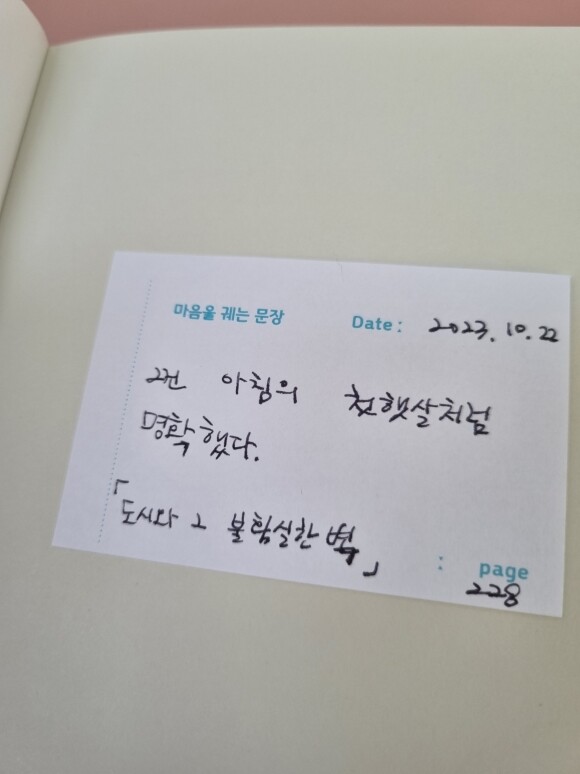 마음을 꿰는 문장 Date : 2023. 10. 22
그건 아침의 첫햇살처럼
명확했다.
「도시와 그 불확실한 벽」
: page
228